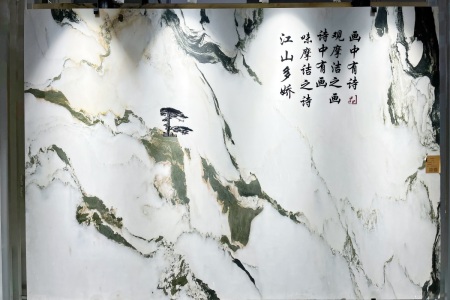 画中有诗
观摩洁之画
诗中有画
味摩诘之诗
江山多娇